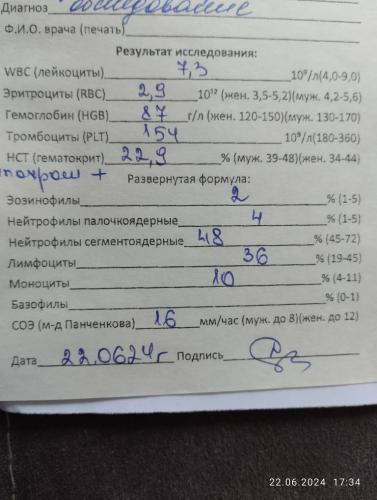 Диагноз обследование
Ф.И.О. врача (печать)
Результат исследования:
WBC (лейкоциты) 7,3 10⁹/л(4,0-9,0)
Эритроциты (RBC) 2,9 10¹² (жен. 3,5-5,2)(муж. 4,2-5,6)
Гемоглобин (HGB) 87 г/л (жен. 120-150)(муж. 130-170)
Тромбоциты (PLT) 154 10⁹/л(180-360)
НСТ (гематокрит) 22,9 % (муж. 39-48)(жен. 34-44)
+ Развернутая формула:
Эозинофилы 2 % (1-5)
Нейтрофилы палочкоядерные 4 % (1-5)
Нейтрофилы сегментоядерные 48 % (45-72)
Лимфоциты 36 % (19-45)
Моноциты 10 % (4-11)
Базофилы % (0-1)
СОЭ (м-д Панченкова) 16 мм/час (муж. до 8)(жен. до 12)
Дата 22.0624г Подпись
22.06.2024 17:34